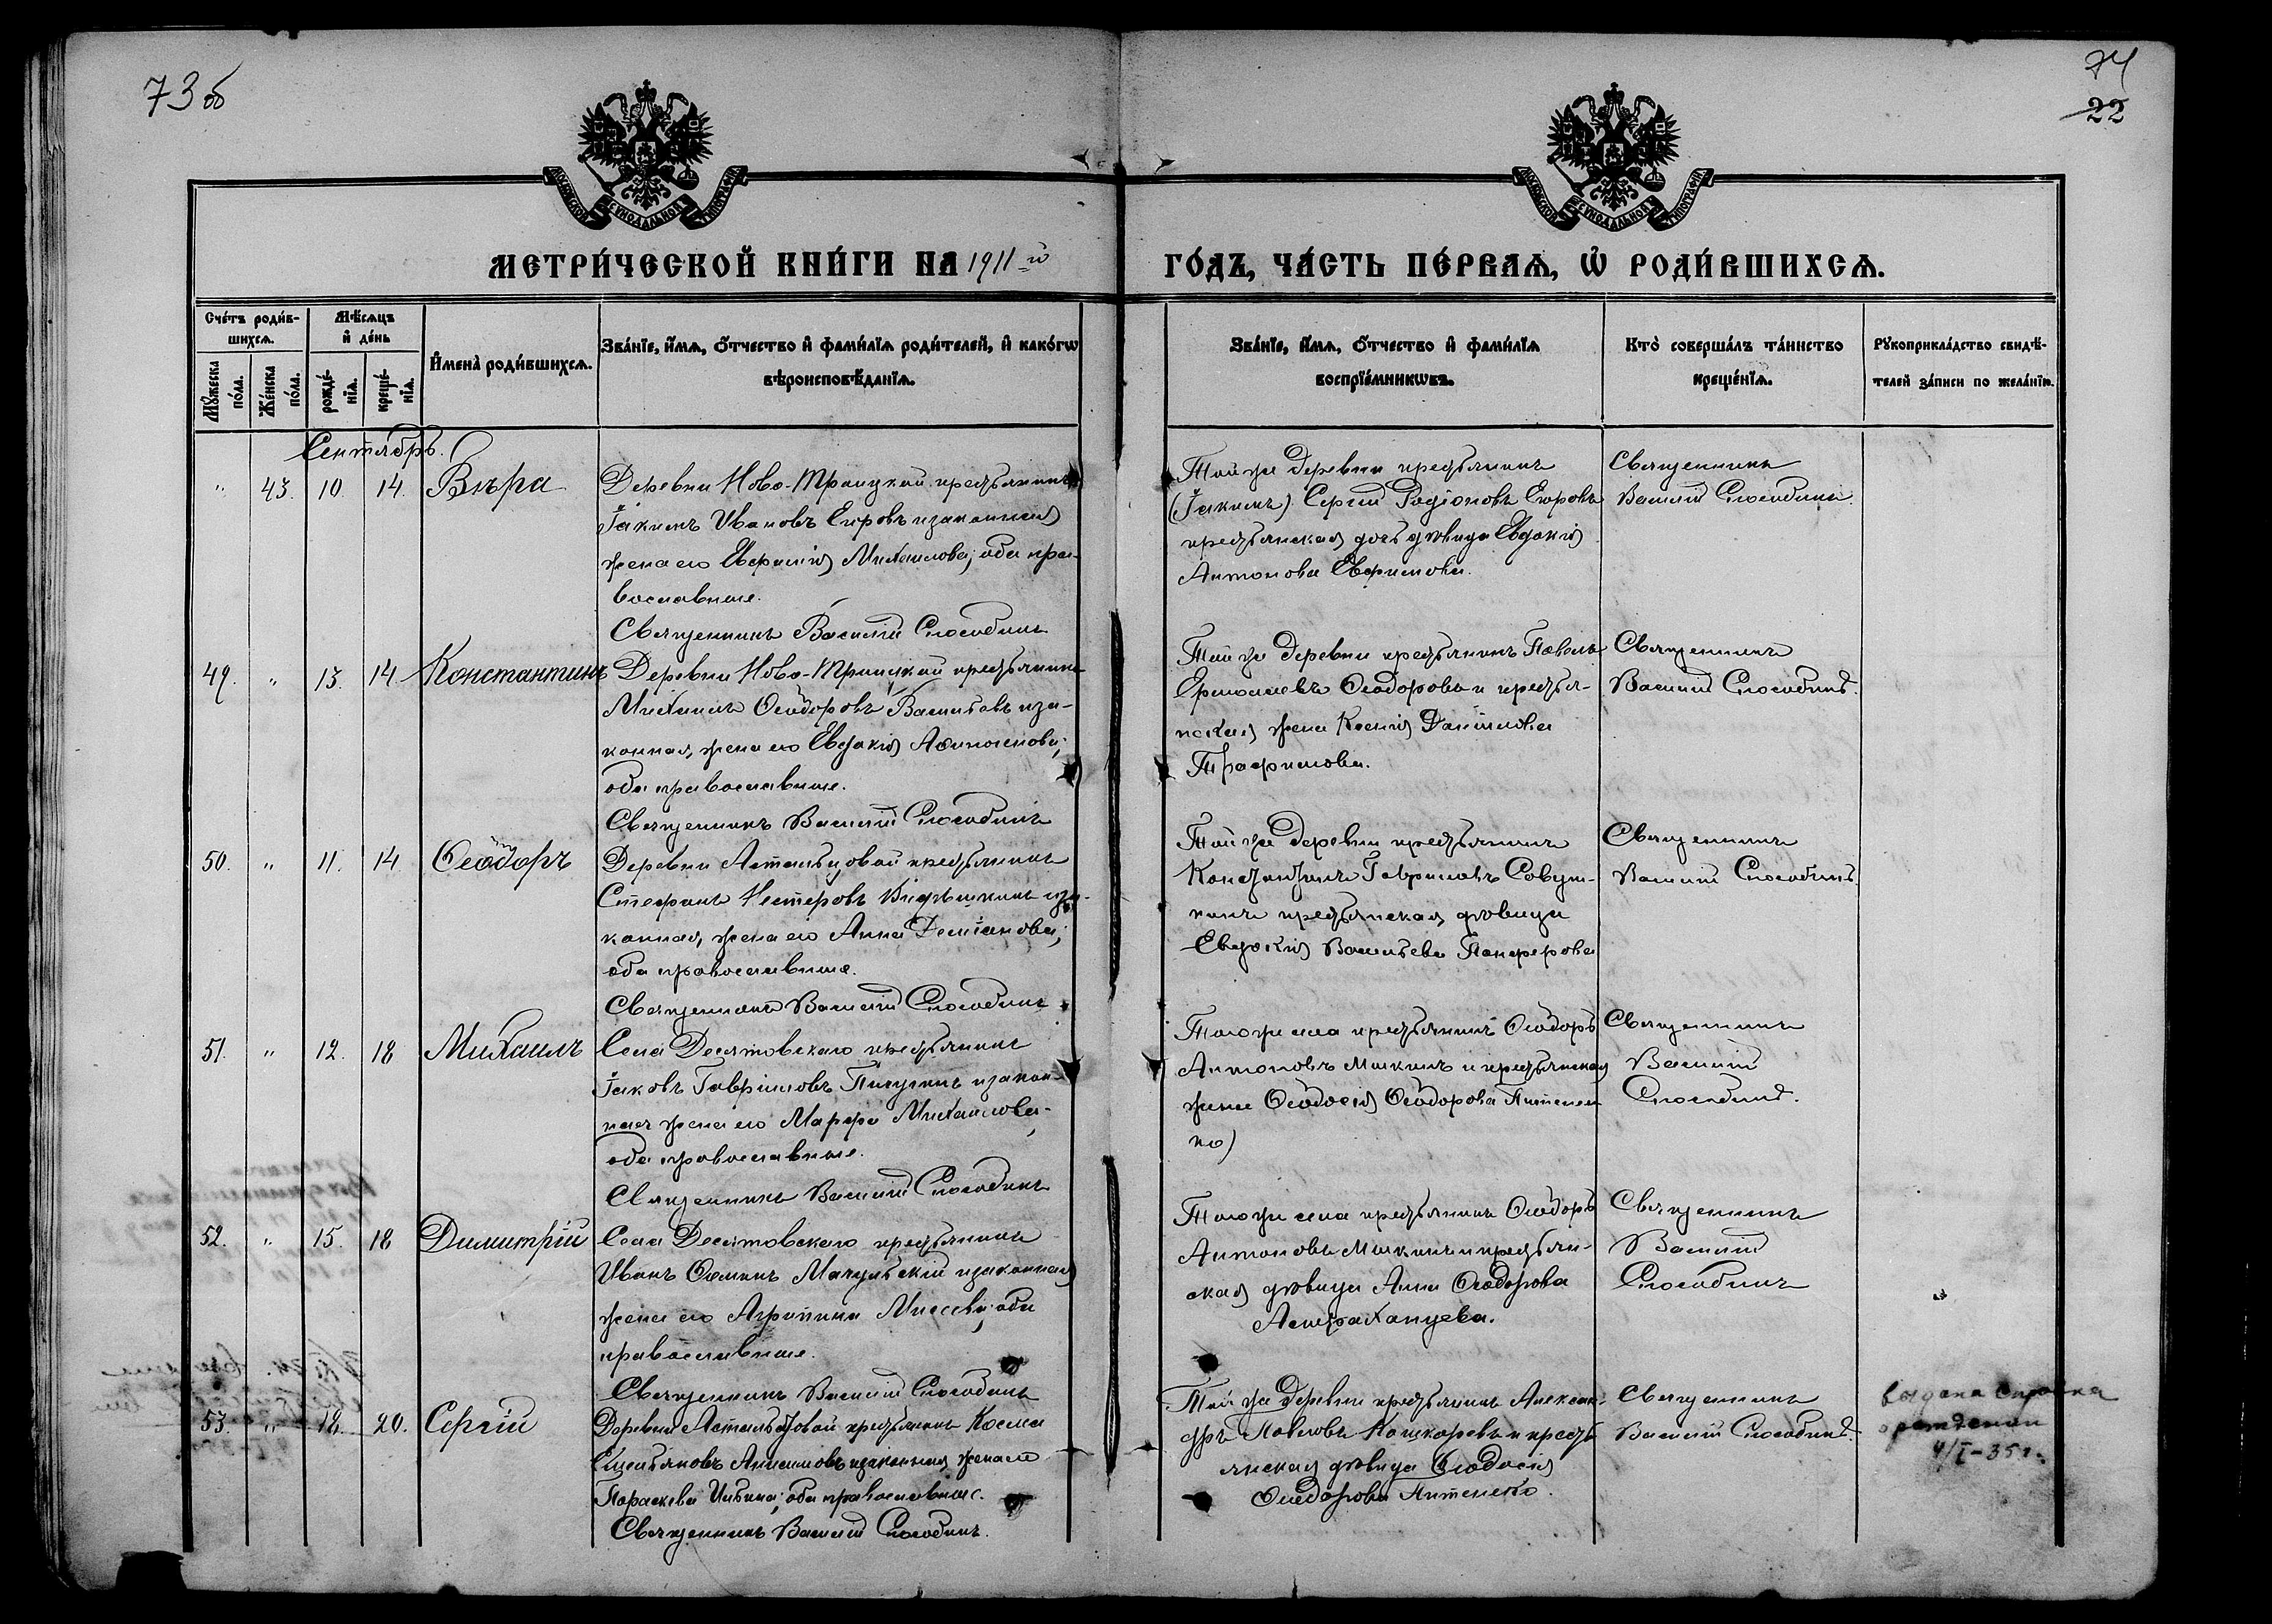 73 об
74
22
МОСКОВСКОЙ СѴНОДАЛЬНОЙ ТИПОГРАФІИ
МОСКОВСКОЙ СѴНОДАЛЬНОЙ ТИПОГРАФІИ
МЕТРИ́ЧЕСКОЙ КНИ́ГИ НА 1911-й ГО́ДЪ, ЧА́СТЬ ПЕ́РВАѦ, Ѡ РОДИ́ВШИХСѦ.
Сче́тъ роди́в-
шихсѧ.
Мꙋжеска по́ла.
Же́нска по́ла.
Мѣ́сѧцъ
и҆ де́нь
рожде́-
нїѧ.
креще́-
нїѧ.
И҆мена̀ роди́вшихсѧ.
Зва́нїе, и҆́мѧ, ѻ҆́тчество и҆ фами́лїѧ роди́телей, и҆ како́гѡ
вѣроисповѣ́данїѧ.
Зва́нїе, и҆́мѧ, ѻ҆́тчество и҆ фами́лїѧ
воспрїе́мникѡвъ.
Кто̀ соверша́лъ та́инство
креще́нїѧ.
Рꙋкоприкла́дство свидѣ́-
телей за́писи по жела́нїю.
Сентябрь.
" 43. 10. 14. Вѣра
Деревни Ново-Троицкой крестьянинъ
Іакимъ Ивановъ Егоровъ и законная
жена его Евфимія Михаилова; оба пра-
вославные.
Священникъ Василій Способинъ
Той же деревни крестьянинъ
(Іакимъ) Сергій Родіоновъ Егоровъ
крестьянская дочь дѣвица Евдокія
Антонова Ефимова.
Священникъ
Василій Способинъ.
49. " 13. 14 Константинъ
Деревни Ново-Троицкой крестьянинъ
Михаилъ Ѳеодоровъ Васильевъ и за-
конная жена его Евдокія
оба православные.
Священникъ Василій Способинъ
Той же деревни крестьянинъ Павелъ
Ермолаевъ Ѳеодоровъ и крестья-
нская жена Ксенія Даніилова
Трофимова.
Священникъ
Василій Способинъ.
50. " 11. 14 Ѳеодоръ
Деревни Астальцовой крестьянинъ
Стефанъ Нестеровъ и за-
конная жена его Анна Даміанова;
оба православные.
Священникъ Василій Способинъ
Той же деревни крестьянинъ
Константинъ Гавриловъ Савуш-
кинъ крестьянская дѣвица
Евдокія Васильева Панферова
Священникъ
Василій Способинъ.
51. " 12. 18 Михаилъ
Села Десятовскаго крестьянинъ
Іаковъ Гавріиловъ Пичугинъ и закон-
ная жена его Марфа Михаилова;
оба православные.
Священникъ Василій Способинъ
Того же села крестьянинъ Ѳеодоръ
Антоновъ Мишкинъ и крестьянская
жена Ѳеодосія Ѳеодорова
Священникъ
Василій
Способинъ.
52. " 15. 18 Димитрій
Села Десятовскаго крестьянинъ
Иванъ Ѳоминъ Мачульскій и законная
жена его Агрипина Моисеева; оба
православные.
Священникъ Василій Способинъ
Того же села крестьянинъ Ѳеодоръ
Антоновъ Мишкинъ и крестьян-
ская дѣвица Анна Ѳеодорова
Астраханцева.
Священникъ
Василій
Способинъ
53. " 18. 20. Сергій
Деревни Астальцовой крестьянинъ Косма
Емельяновъ Анисимовъ и законная жена его
Параскева Ильина; оба православные.
Священникъ Василій Способинъ.
Той же деревни крестьянинъ Алексан-
дръ Павловъ Кошкаревъ и кресть-
янская дѣвица Ѳеодосія
Ѳеодорова
Священникъ
Василій Способинъ.
выдана справка
о рождении
4/I-35 г.